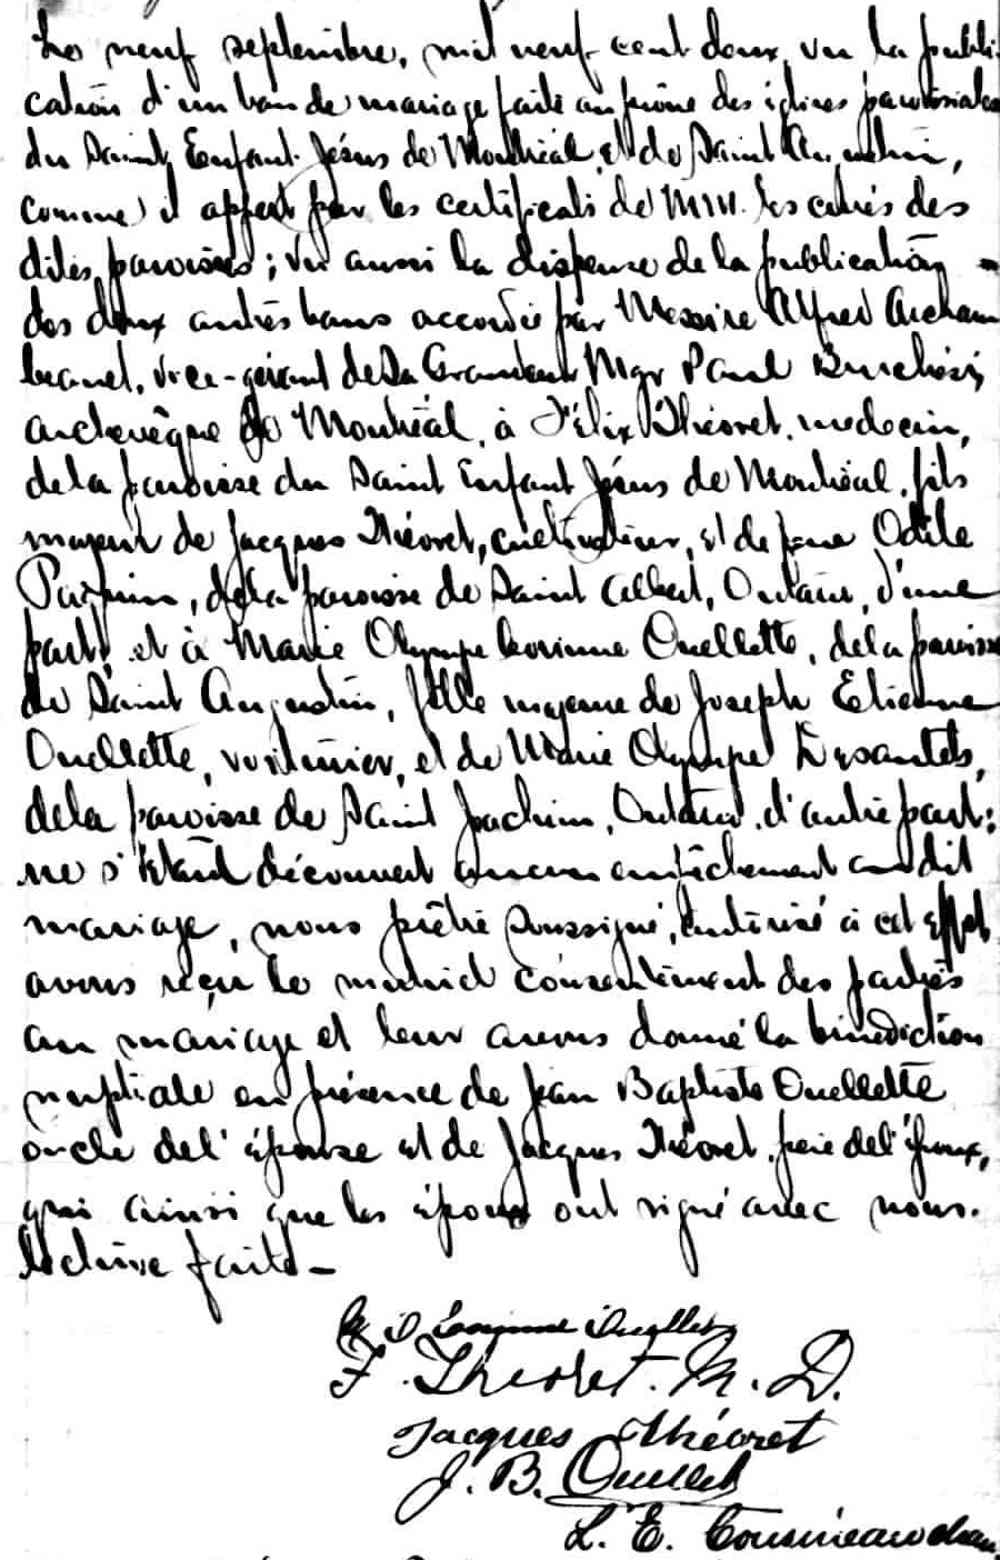 Le neuf septembre, mil neuf cent deux, vu la publi
cation d'un ban de mariage faite au prône des églises paroissiales
du Saint Enfant Jésus de Montréal et de Saint Augustin,
comme il appert par les certificats de MM. les curés des
dites paroisses ; vu aussi la dispense de la publication
des deux autres bans accordée par Messire Alfred Archam
beault, vice-gérant de Sa Grandeur Mgr Paul Bruchési,
archevêque de Montréal, à Félix Théoret, médecin,
de la paroisse du Saint Enfant Jésus de Montréal, fils
majeur de Jacques Théoret, cultivateur, et de feue Odile
de la paroisse de Saint Albert, Ontario, d'une
part, et à Marie Olympe Corinne Ouellette, de la paroisse
de Saint Augustin, fille majeure de Joseph Etienne
Ouellette, voiturier, et de Marie Olympe
de la paroisse de Saint Joachim, Ontario, d'autre part ;
ne s'étant découvert aucun empêchement au dit
mariage, nous prêtre soussigné, autorisé à cet effet
avons reçu le mutuel consentement des parties
au mariage et leur avons donné la bénédiction
nuptiale en présence de Jean Baptiste Ouellette
oncle de l'épouse et de Jacques Théoret, père de l'époux,
qui ainsi que les époux ont signé avec nous.
lecture faite –
Corinne Ouellette
F. Théoret. M. D.
Jacques Théoret
J. B. Ouellet
L. E. Cousineau